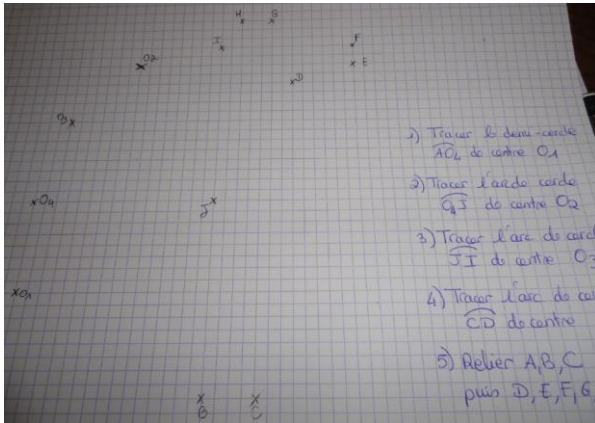 H G
I F
O2 E
D
1) Tracer le demi-cercle
AO4 de centre O1
O4 J
2) Tracer l'arc de cercle
de centre O2
3) Tracer l'arc de cercl
JI de centre O3
O1
4) Tracer l'arc de ce
CD de centre
5) Relier A, B, C
puis D, E, F, G,
B C